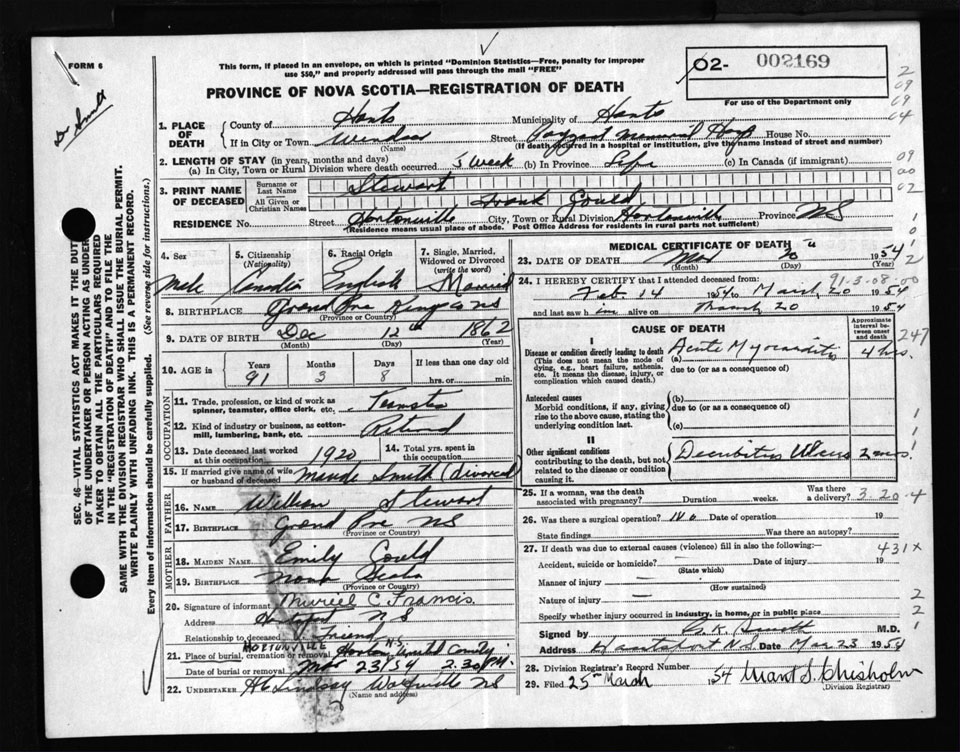 FORM 6
This form, if placed in an envelope, on which is printed "Dominion Statistics—Free, penalty for improper
use $50," and properly addressed will pass through the mail "FREE"
02- 002169
For use of the Department only
PROVINCE OF NOVA SCOTIA—REGISTRATION OF DEATH
Dr Smith
1. PLACE OF DEATH
County of Hants Municipality of Hants
If in City or Town Windsor Street Payzant Memorial Hosp House No.
(Name) (If death occurred in a hospital or institution, give the name instead of street and number)
2. LENGTH OF STAY (in years, months and days)
(a) In City, Town or Rural Division where death occurred 5 Week (b) In Province Life (c) In Canada (if immigrant)
3. PRINT NAME OF DECEASED
Surname or Last Name Stewart
All Given or Christian Names Frank Gould
RESIDENCE No. Street Hortonville City, Town or Rural Division Hortonville Province NS
(Residence means usual place of abode. Post Office Address for residents in rural parts not sufficient)
SEC. 46—VITAL STATISTICS ACT MAKES IT THE DUTY
OF THE UNDERTAKER OR PERSON ACTING AS UNDER-
TAKER TO OBTAIN ALL THE PARTICULARS REQUIRED
IN THE "REGISTRATION OF DEATH" AND TO FILE THE
SAME WITH THE DIVISION REGISTRAR WHO SHALL ISSUE THE BURIAL PERMIT.
WRITE PLAINLY WITH UNFADING INK. THIS IS A PERMANENT RECORD.
Every item of information should be carefully supplied. (See reverse side for instructions.)
4. Sex Male
5. Citizenship (Nationality) Canadian
6. Racial Origin English
7. Single, Married, Widowed or Divorced (write the word) Married
8. BIRTHPLACE Grand Pre Kings NS
(Province or Country)
9. DATE OF BIRTH Dec 12th 1862
(Month) (Day) (Year)
10. AGE in Years 91 Months 3 Days 8 If less than one day old hrs. or min.
OCCUPATION
11. Trade, profession, or kind of work as spinner, teamster, office clerk, etc. Teamster
12. Kind of industry or business, as cotton-mill, lumbering, bank, etc. Retired
13. Date deceased last worked at this occupation 1920
14. Total yrs. spent in this occupation
15. If married give name of wife or husband of deceased Maude Smith (divorced)
FATHER
16. Name William Stewart
17. Birthplace Grand Pre NS
(Province or Country)
MOTHER
18. MAIDEN NAME Emily Gould
19. BIRTHPLACE Nova Scotia
(Province or Country)
20. Signature of informant Muriel C. Francis
Address N S
Relationship to deceased Friend
HORTONVILLE N.S.
21. Place of burial, cremation or removal Horton United Cemetry
Date of burial or removal Mar 23/54 2.30 P.M.
22. UNDERTAKER H C Lindsay Wolfville NS
(Name and address)
MEDICAL CERTIFICATE OF DEATH
23. DATE OF DEATH Mar 20 1954
(Month) (Day) (Year)
24. I HEREBY CERTIFY that I attended deceased from:
Feb. 14 1954 to March 20 1954
and last saw him alive on March 20 1954
91-3-08-00
CAUSE OF DEATH
Approximate interval between onset and death
I
Disease or condition directly leading to death
(This does not mean the mode of dying, e.g., heart failure, asthenia, etc. It means the disease, injury, or complication which caused death.)
(a) Acute Myocarditis 4 hrs.
due to (or as a consequence of)
Antecedent causes
Morbid conditions, if any, giving rise to the above cause, stating the underlying condition last.
(b)
due to (or as a consequence of)
(c)
II
Other significant conditions
contributing to the death, but not related to the disease or condition causing it.
Decubitus Ulcers 2 mos.
25. If a woman, was the death associated with pregnancy? Duration weeks. Was there a delivery?
3-20-4
26. Was there a surgical operation? No Date of operation 19
State findings Was there an autopsy?
27. If death was due to external causes (violence) fill in also the following:—
431x
Accident, suicide or homicide? Date of injury 19
(State which)
Manner of injury
(How sustained)
Nature of injury
Specify whether injury occurred in industry, in home, or in public place
Signed by G. K. Smith M.D.
Address Hantsport N.S. Date Mar 23 1954
28. Division Registrar's Record Number
29. Filed 25th March 1954 Chisholm
(Division Registrar)
2
09
09
64
09
00
02
1
0
1
2
247
1
1
1
2
2
1
1